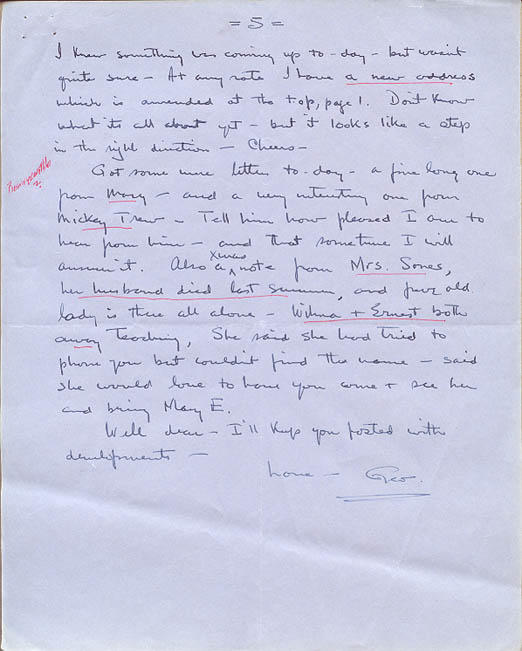 = 5 =
I knew something was coming up to-day - but wasn't
quite sure - At any rate I have a new address
which is amended at the top, page 1. Don't know
what its all about yet - but it looks like a step
in the right direction - Cheers -
Got some more letters to-day - a fine long one
from Mary - and a very interesting one from
Mickey Trew - Tell him how pleased I am to
hear from him - and that sometime I will
answer it. Also a Xmas note from Mrs. Sones,
her husband died last summer, and poor old
lady is there all alone - Wilma + Ernest both
away teaching, She said she had tried to
phone you but couldn't find the name - said
she would love to have you come + see her
and bring Mary E.
Well dear - I'll keep you posted with
developments -
Love - Geo.